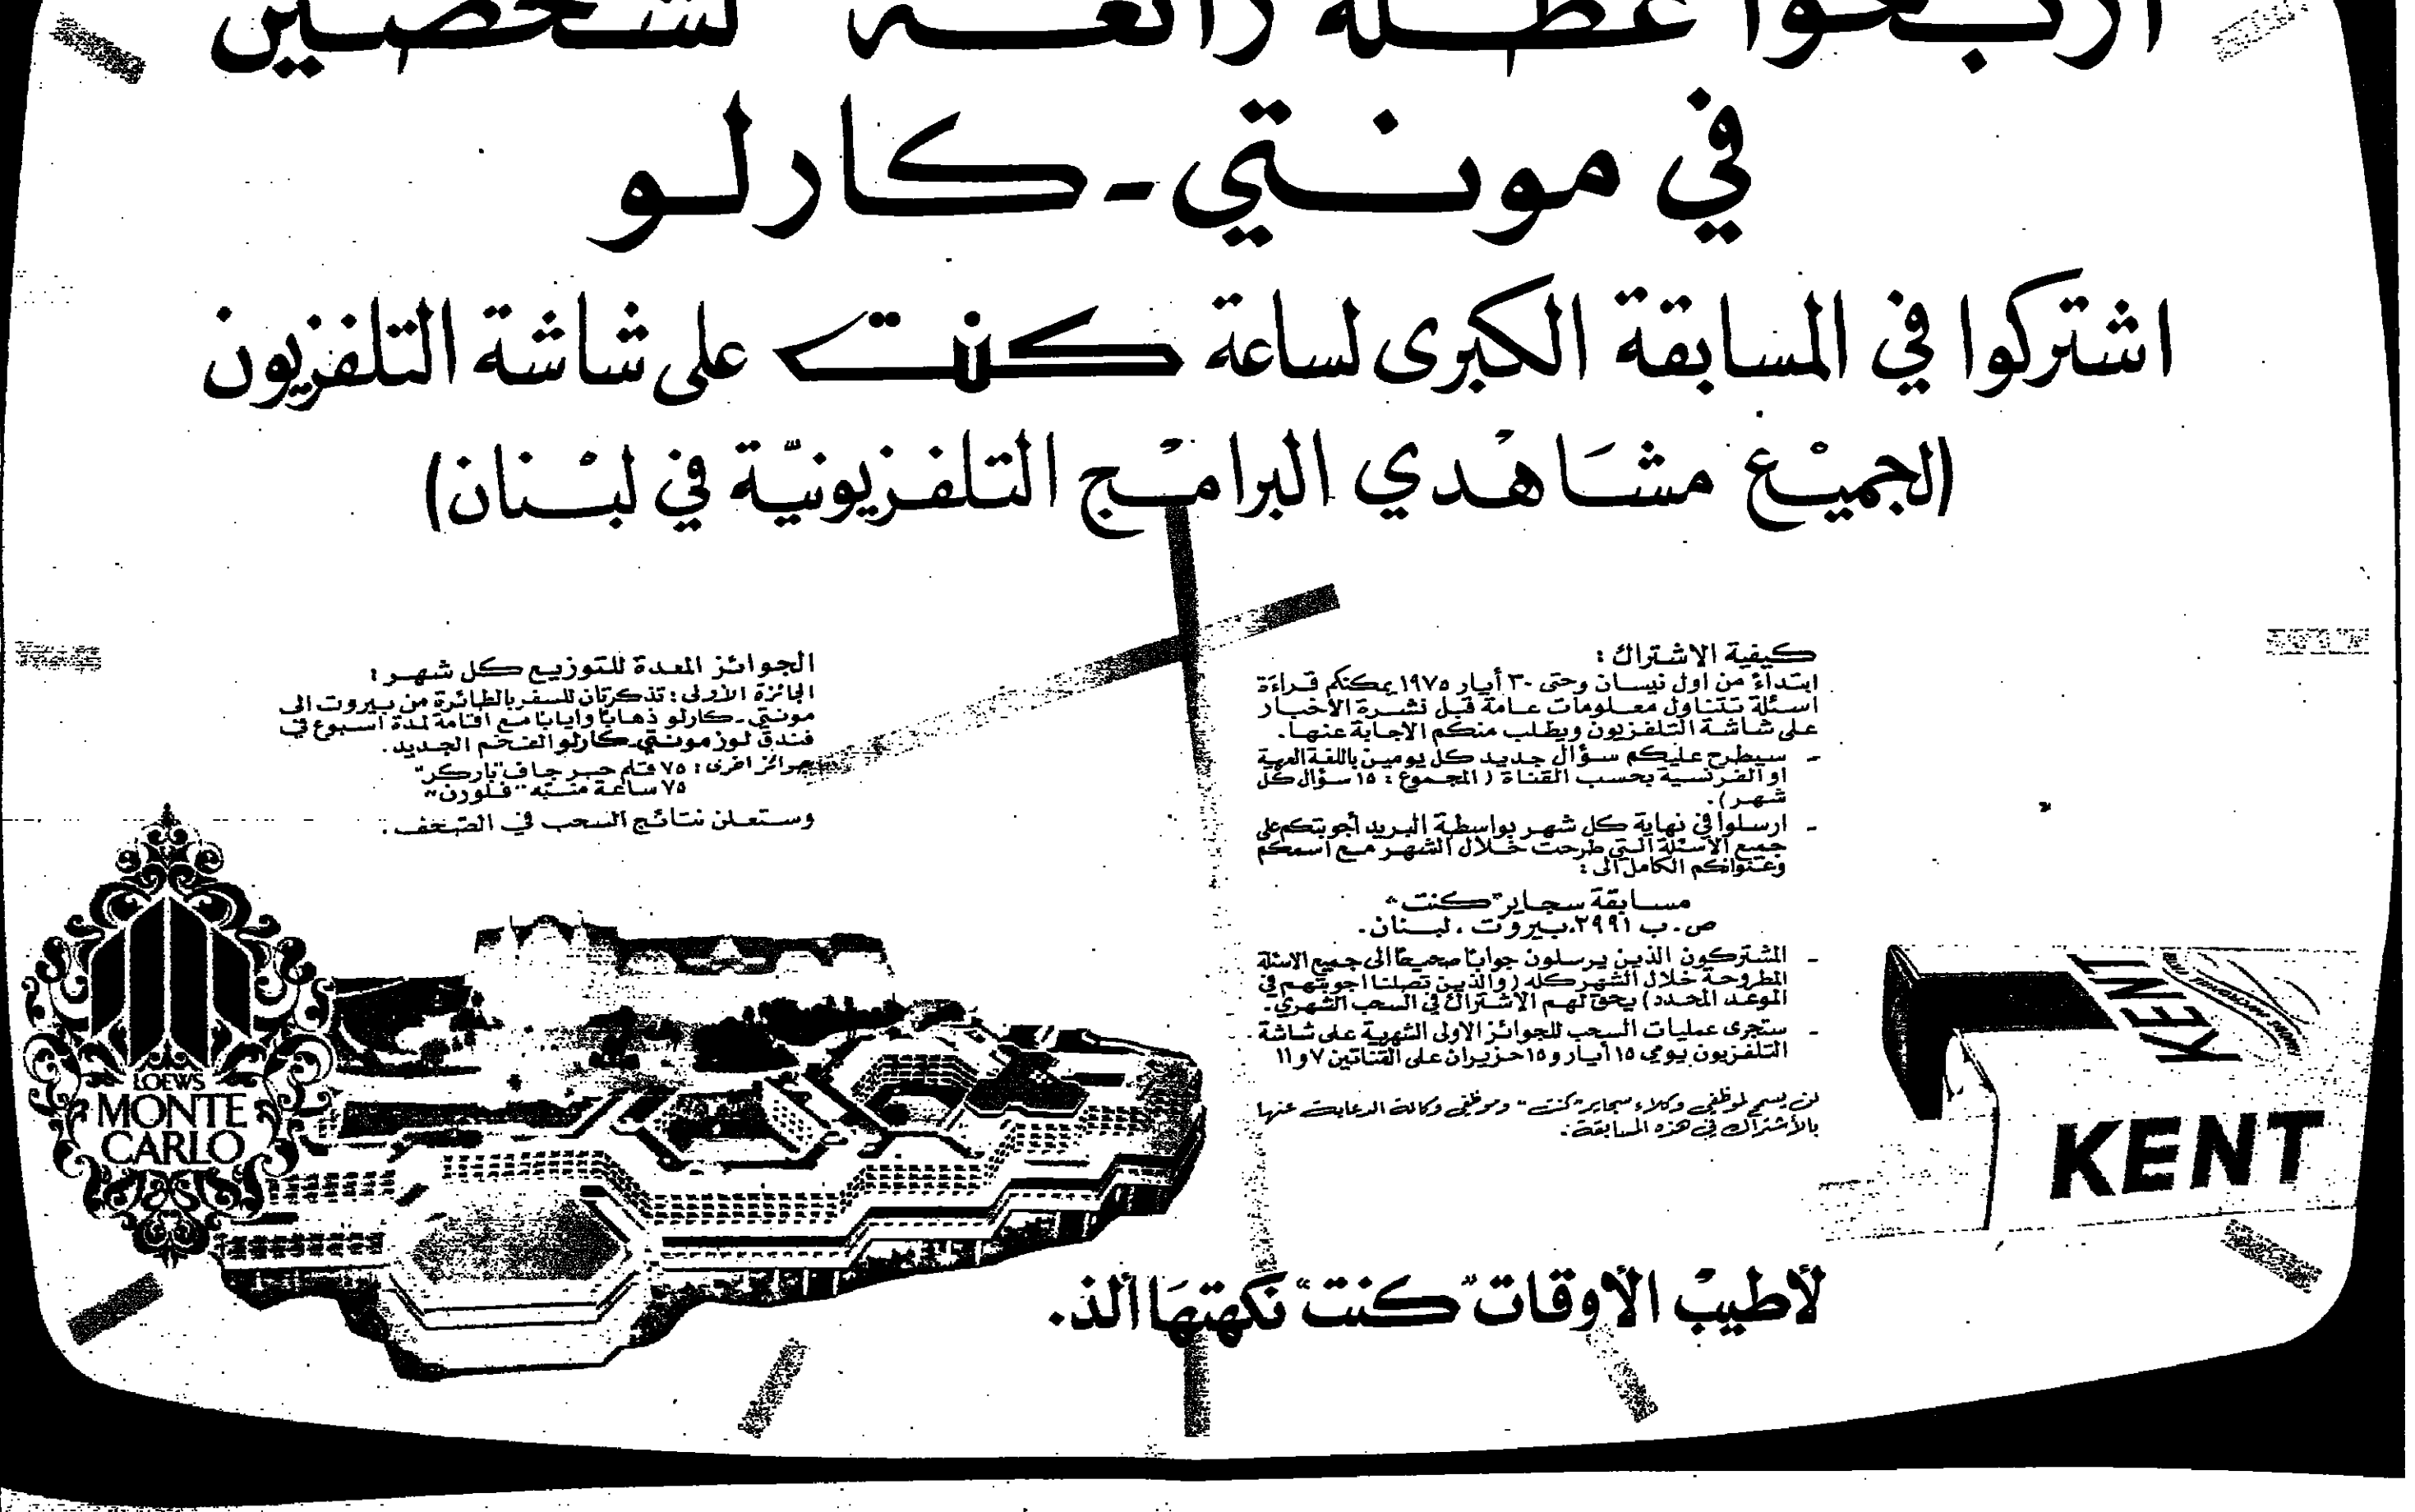 اربحوا عطلة رائعة لشخصين
في مونتي-كارلو
اشتركوا في المسابقة الكبرى لساعة كنت على شاشة التلفزيون
(لجميع مشاهدي البرامج التلفزيونية في لبنان)
كيفية الاشتراك :
ابتداءً من اول نيسان وحتى ٣٠ أيار ١٩٧٥ يمكنكم قراءة
اسئلة تتناول معلومات عامة قبل نشرة الأخبار
على شاشة التلفزيون ويطلب منكم الاجابة عنها.
- سيطرح عليكم سؤال جديد كل يومين باللغة العربية
او الفرنسية بحسب القناة ( المجموع : ١٥ سؤال كل
شهر ) .
- ارسلوا في نهاية كل شهر بواسطة البريد أجوبتكم على
جميع الاسئلة التي طرحت خلال الشهر مع اسمكم
وعنوانكم الكامل الى :
مسابقة سجاير "كنت"
ص. ب ٢٩٩١، بيروت ، لبنان.
- المشتركون الذين يرسلون جواباً صحيحاً الى جميع الاسئلة
المطروحة خلال الشهر كله ( والذين تصلنا اجوبتهم في
الموعد المحدد ) يحق لهم الاشتراك في السحب الشهري.
- ستجرى عمليات السحب للجوائز الاولى الشهرية على شاشة
التلفزيون يومي ١٥ أيار و ١٥ حزيران على القناتين ٧ و ١١
لن يسمح لموظفي وكلاء سجاير "كنت" وموظفي وكالة الدعاية عنها
بالأشتراك في هذه المسابقة.
الجوائز المعدة للتوزيع كل شهر :
الجائزة الأولى : تذكرتان للسفر بالطائرة من بيروت الى
مونتي-كارلو ذهاباً واياباً مع اقامة لمدة اسبوع في
فندق لوز مونتي-كارلو الفخم الجديد .
جوائز اخرى : ٧٥ قلم حبر جاف "باركر"
٧٥ ساعة منبّه "فلورن"
وستعلن نتائج السحب في الصحف .
LOEWS
MONTE
CARLO
KENT
KENT
لأطيب الأوقات "كنت" نكهتها ألذ.